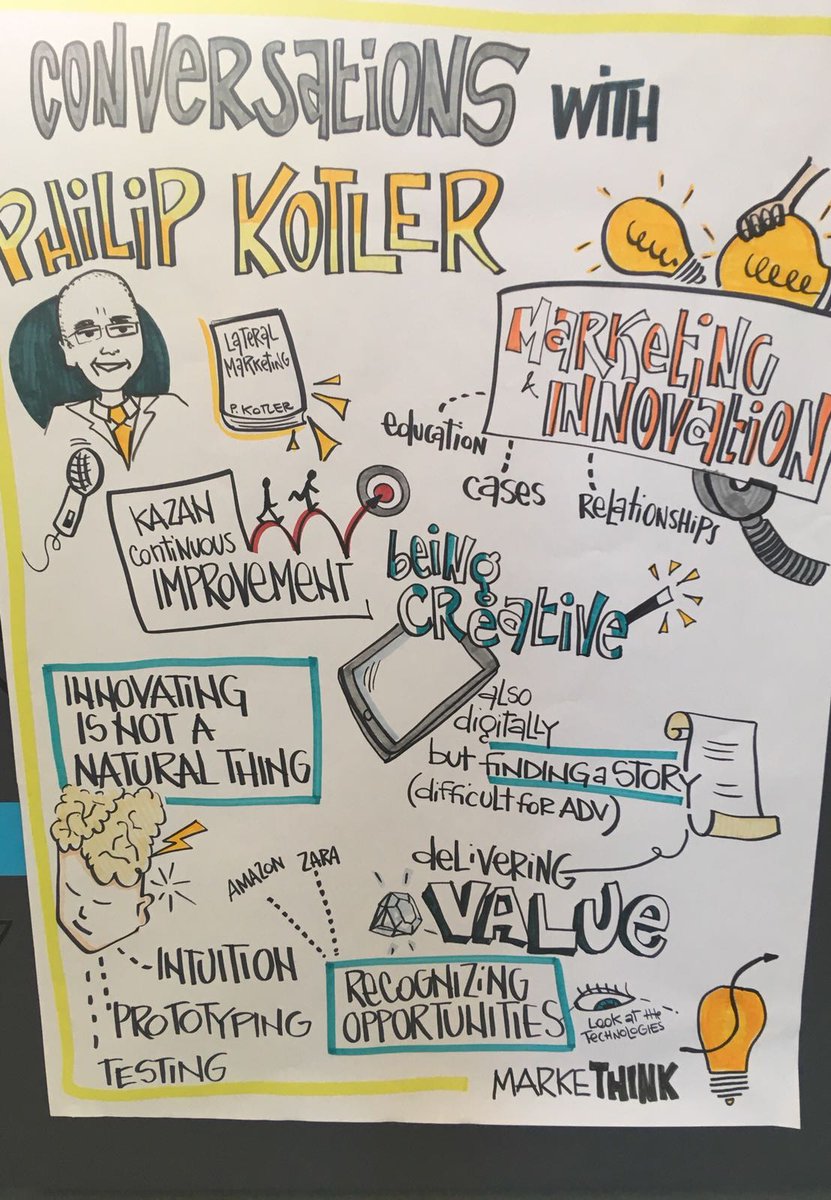 CONVERSATIONS WITH
PHILIP KOTLER
LATERAL
MARKETING
P. KOTLER
MARKETING
& INNOVATION
education
cases
RELATIONSHIPS
KAZAN
CONTINUOUS
IMPROVEMENT
being
CREATIVE
also
digitally
but FINDING a STORY
(difficult for ADV)
INNOVATING
IS NOT A
NATURAL THING
delivering
VALUE
AMAZON ZARA
INTUITION
PROTOTYPING
TESTING
RECOGNIZING
OPPORTUNITIES
LOOK at the
TECHNOLOGIES
MARKETHINK